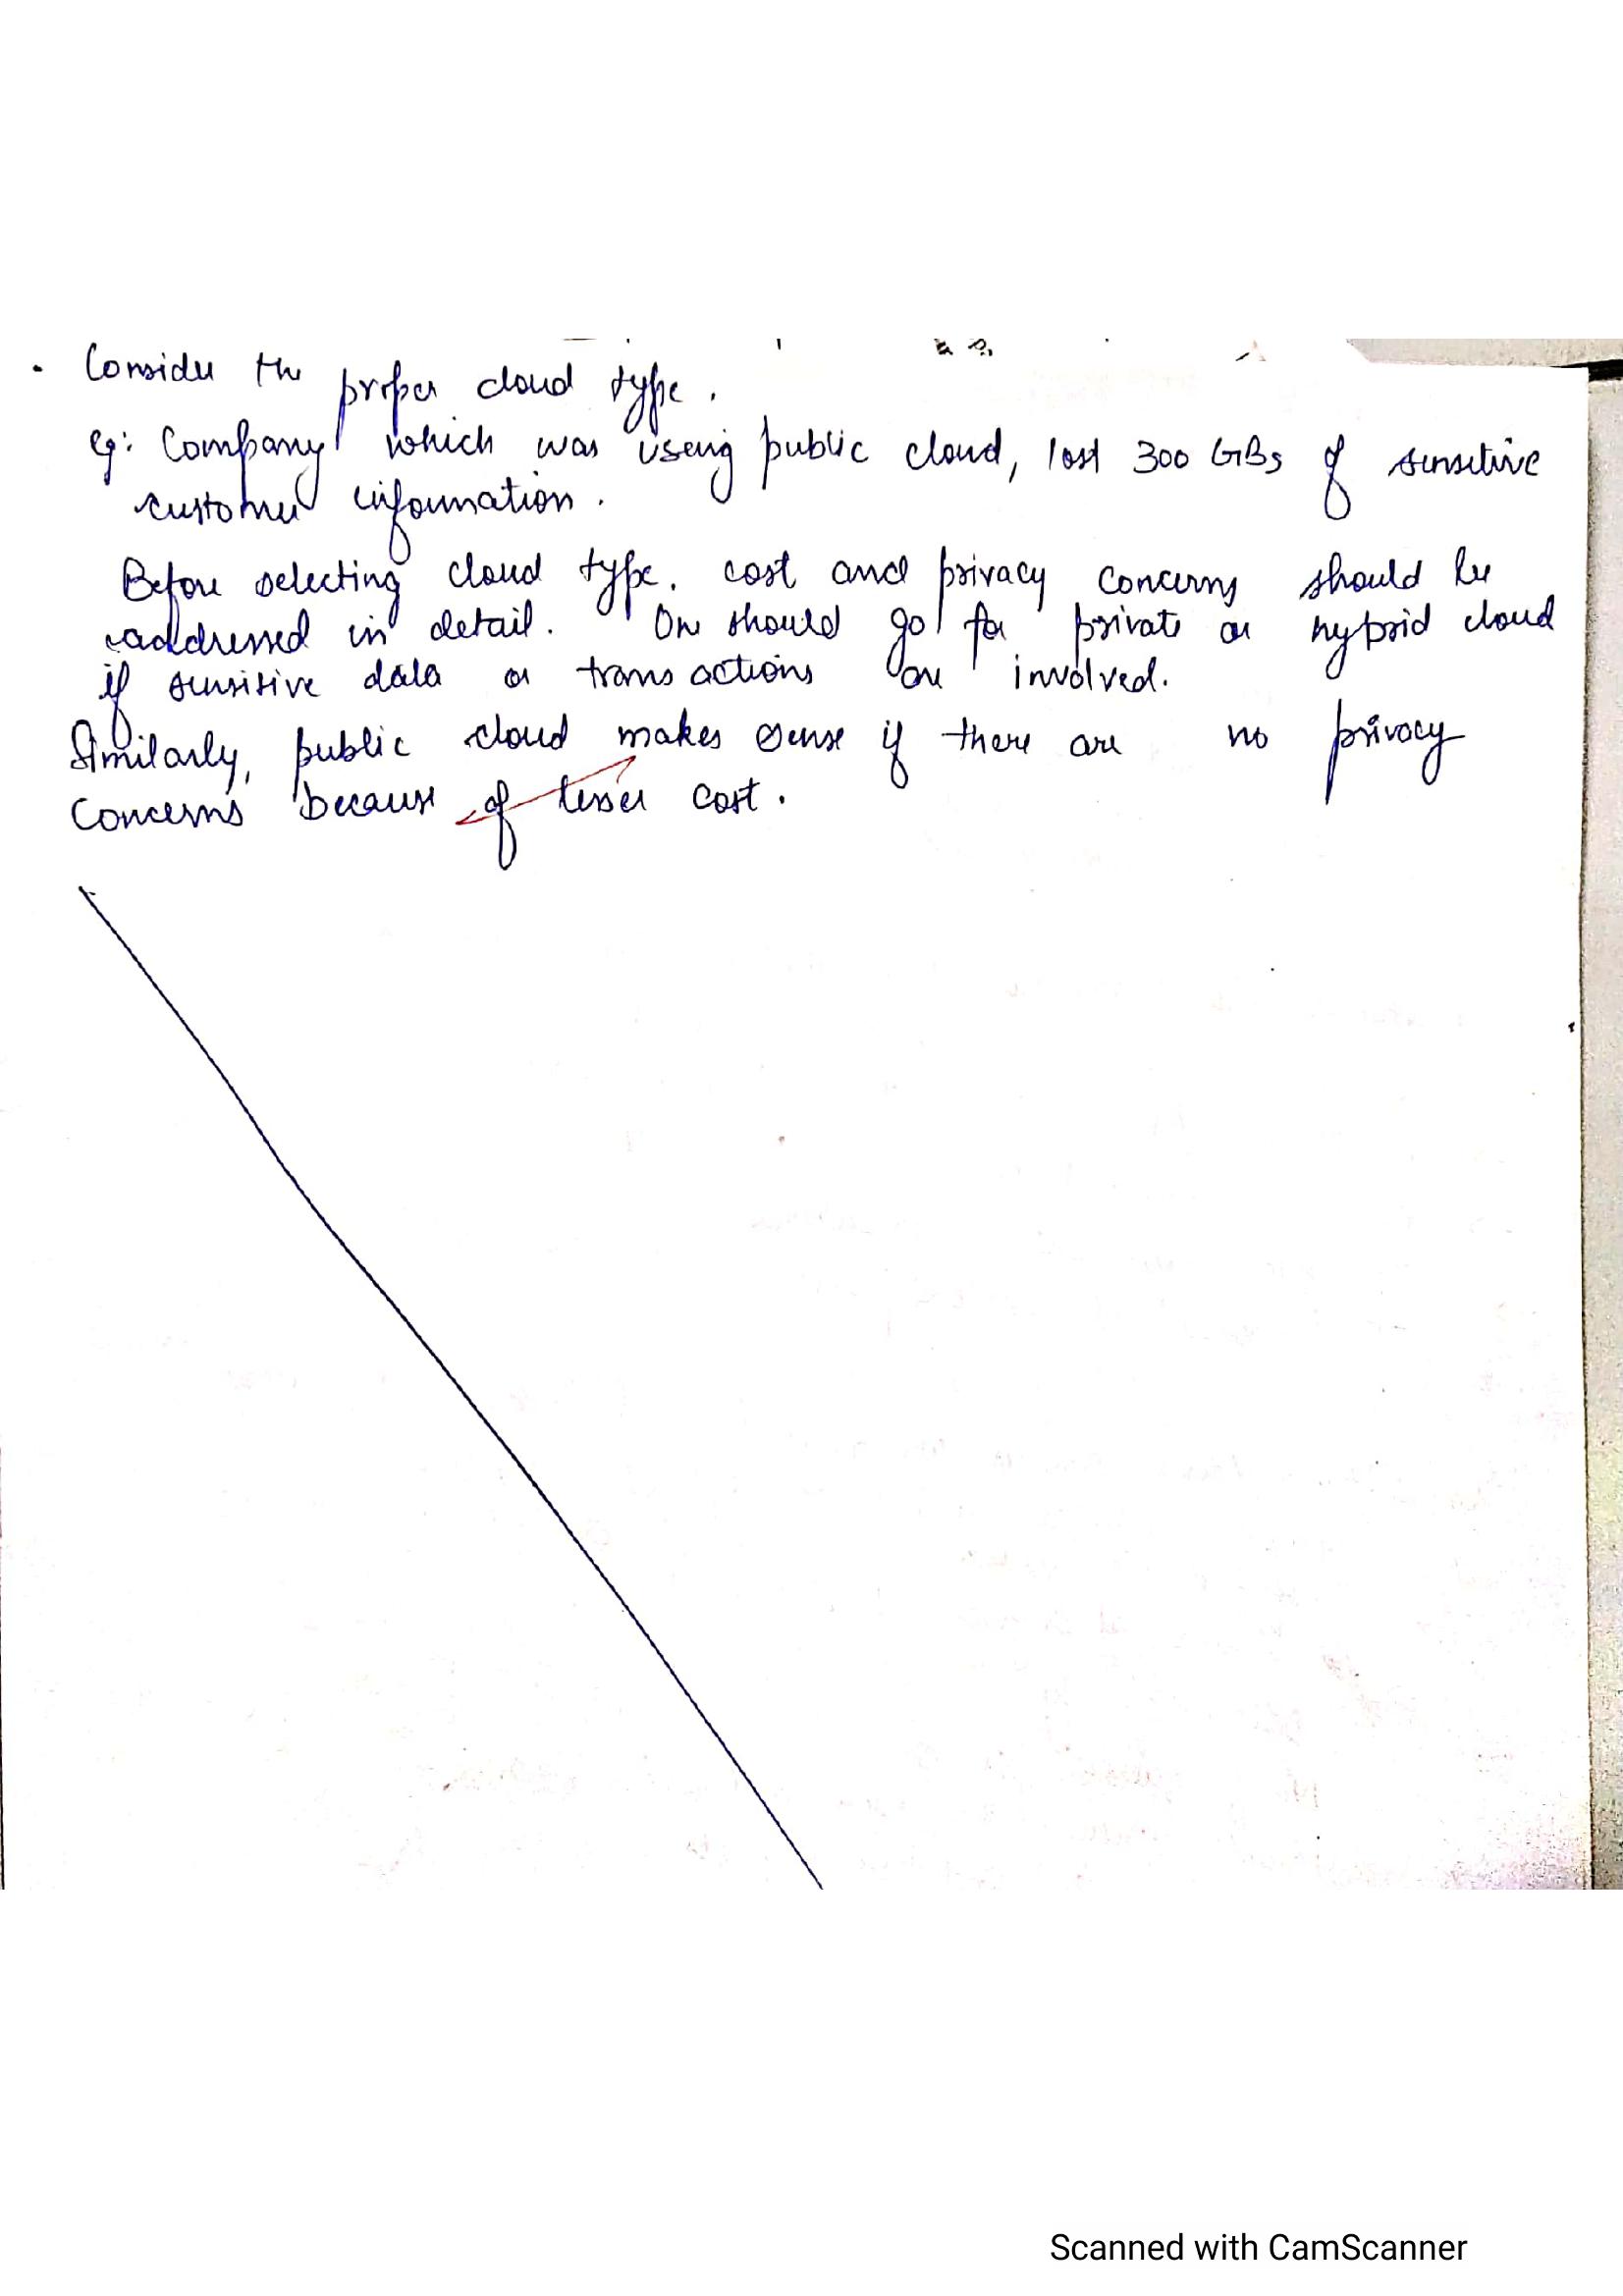 . Consider the proper cloud type.
eg: Company which was using public cloud, lost 300 GBs of sensitive
customer information.
Before selecting cloud type, cost and privacy concerns should be
addressed in detail. One should go for private or hybrid cloud
if sensitive data or transactions are involved.
Similarly, public cloud makes sense if there are no privacy
concerns because of lesser cost.
Scanned with CamScanner